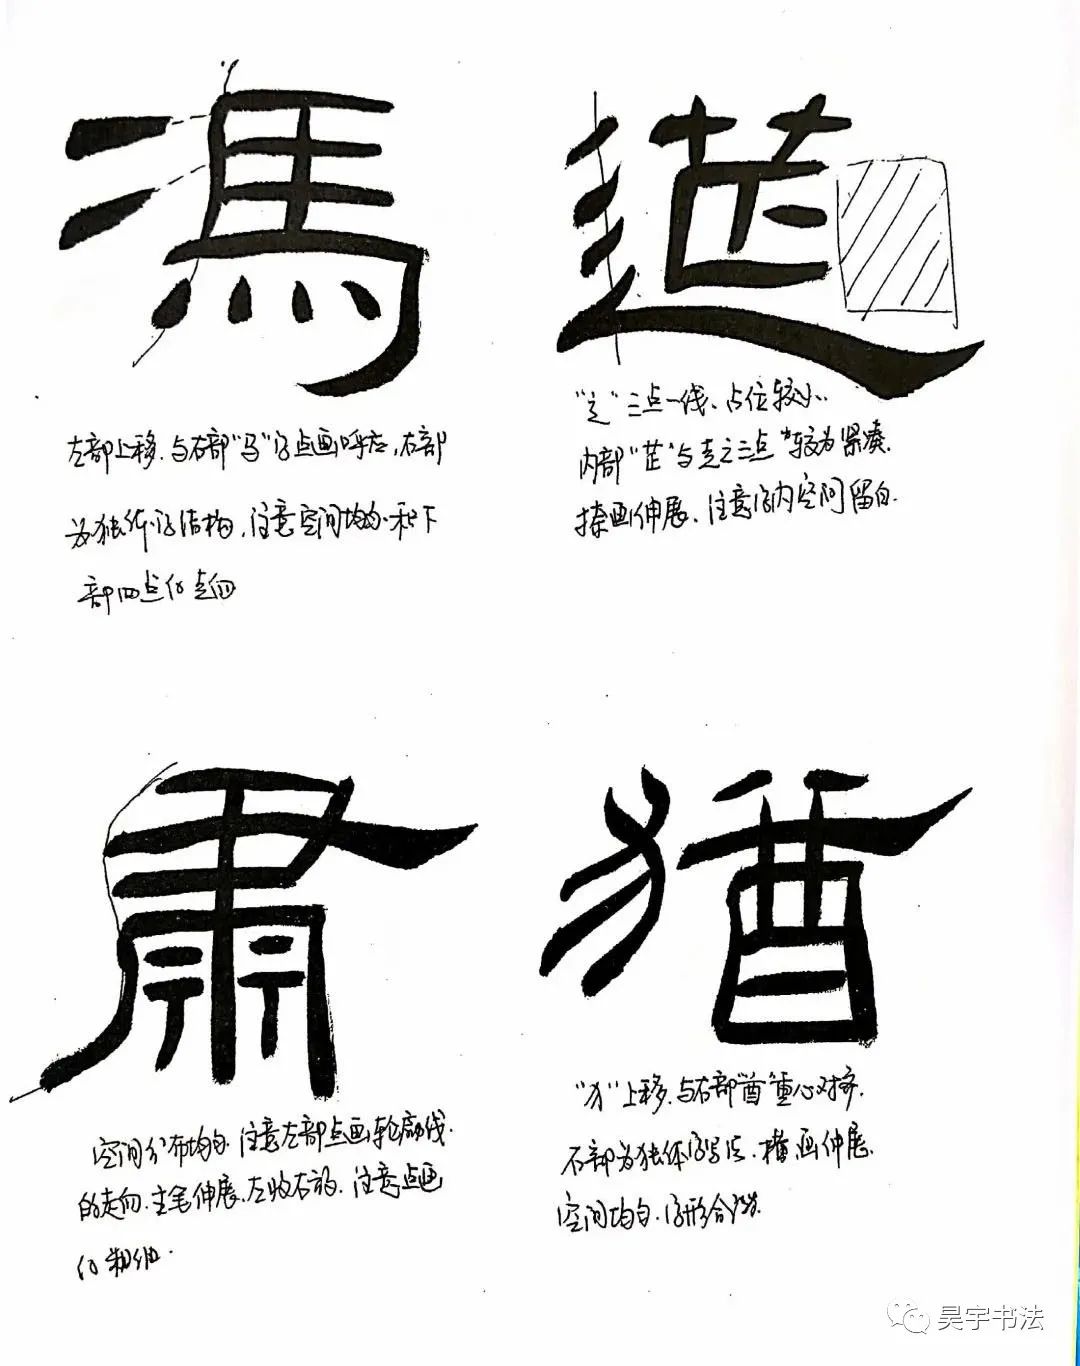 馮
左部上移.与右部"马"字点画呼应,右部
为独体字结构,注意空间均匀.和下
部四点的走向
"辶"三点一线、占位较小.
内部"芷"与走之三点"较为紧凑.
捺画伸展、注意字内空间留白.
肃
空间分布均匀.注意左部点画轮廓线.
的走向.主笔伸展、左收右放.注意点画
的粗细.
猶
"犭"上移.与右部"酋"重心对齐.
右部为独体字写法.横画伸展.
空间均匀.字形合谐.
昊宇书法